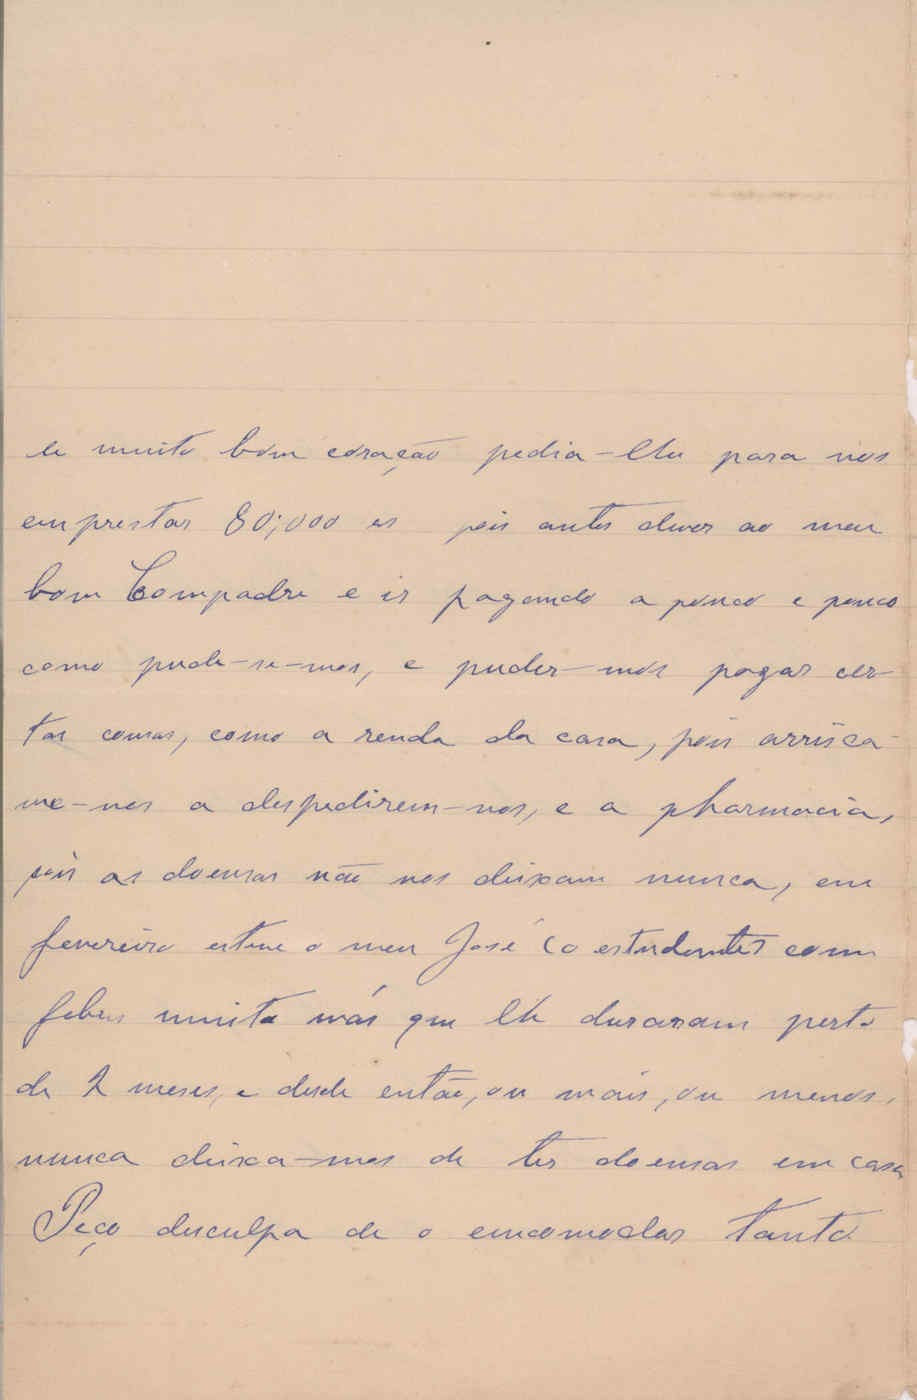 le muito bom coração pedia-lhe para nos
emprestar 80;000 es pois antes dever ao meu
bom Compadre e ir pagando a pouco e pouco
como pude-se-mos, e puder-mos pagar cer-
tas cousas, como a renda da casa, pois arrisca-
me-nos a despedirem-nos, e a pharmacia,
pois as doensas não nos deixam nunca, em
fevereiro esteve o meu José (o estudante) com
febres muito más que lhe duraram perto
de 2 meses, e desde então, ou mais, ou menos,
nunca deixa-mos de ter doensas em casa
Peço desculpa de o encomodar tanto